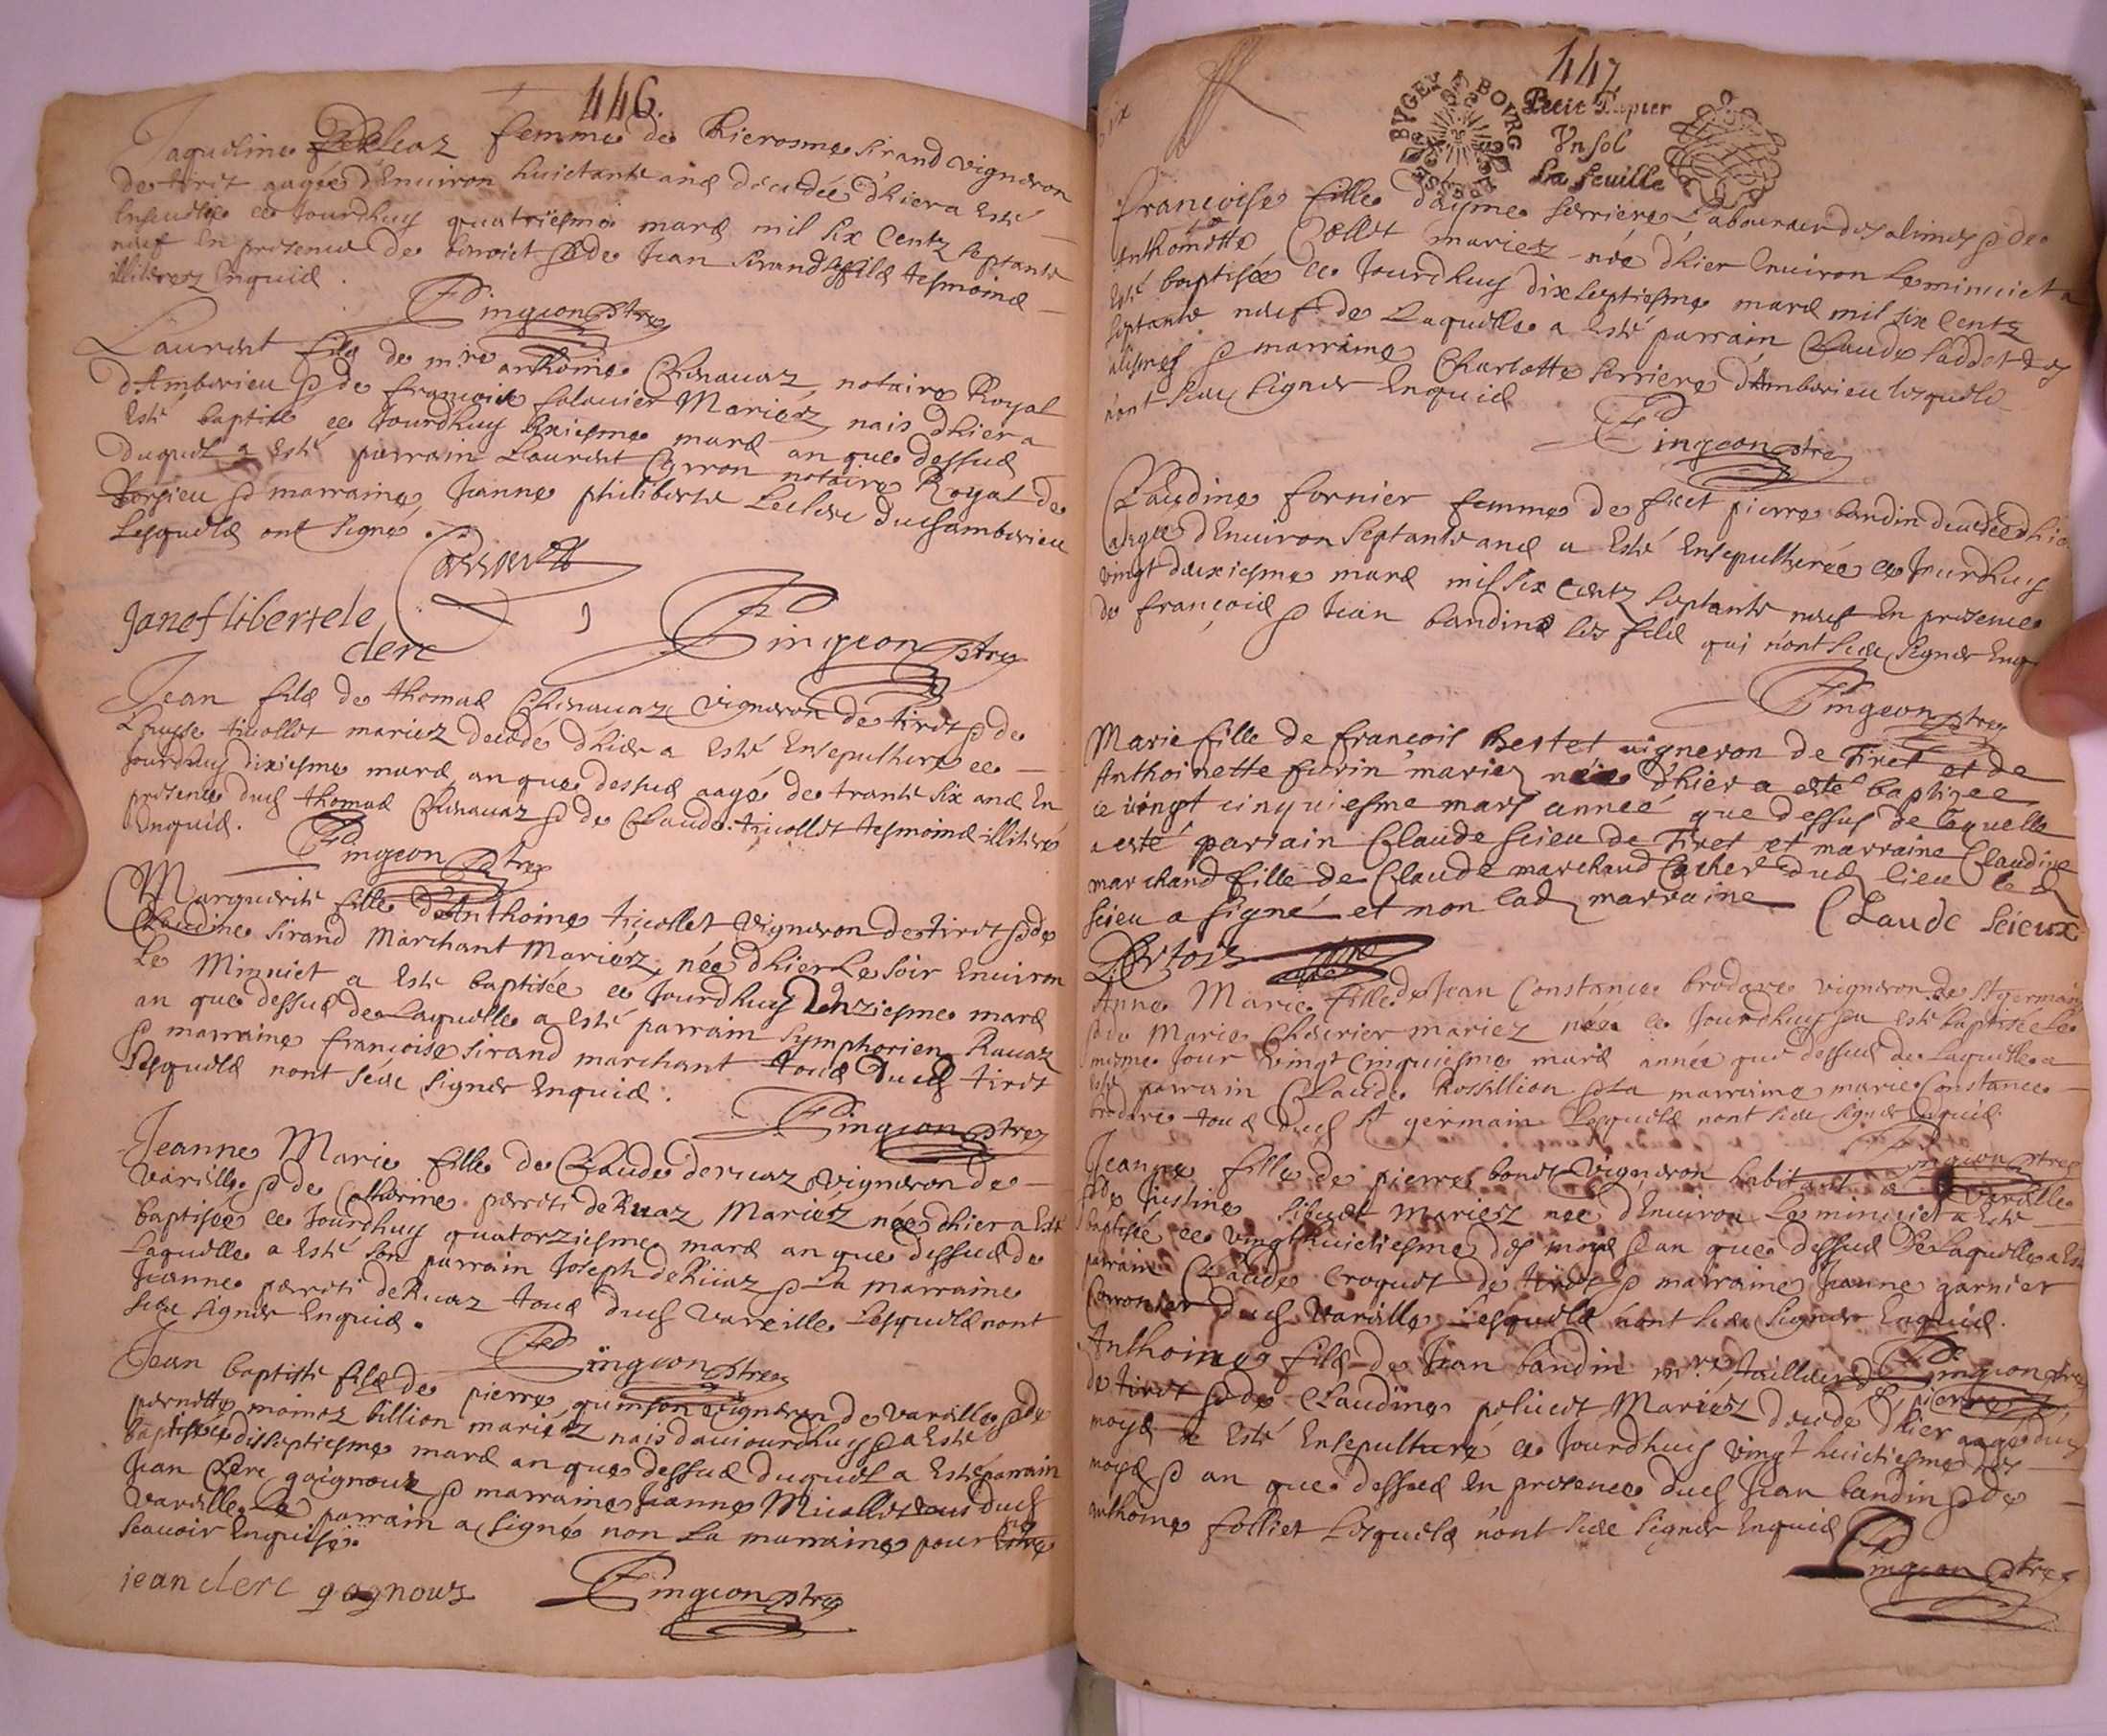 446.
Jaqueline femme de Hierosme Sirand vigneron
de tiret aagée d'Environ huictante ans décédée d'hier a Esté
Ensevelie ce Jourdhuy quatriesme mars mil six Centz septante
neuf En présence de benoict & de Jean Sirand ses fils tesmoins
illiterez Enquis.
Pingeon ptre
Laurent fils de mre anthoine Chenavaz notaire Royal
d'Amberieu & de françoise Mariez, nais d'hier a
Esté baptisé ce Jourdhuy sixiesme mars an que dessus
duquel a Esté parrain Laurent Carron notaire Royal de
& marraine Jeanne philiberte Leclerc dud amberieu
Lesquels ont signé.
Janef liberte le
clerc
Pingeon ptre
Jean fils de thomas Chenavaz vigneron de tiret & de
tricollet mariez décédé d'hier a Esté Ensepulturé ce
Jourdhuy dixiesme mars an que dessus aagé de trante six ans En
présence dud thomas Chenavaz & de Claude tricollet tesmoins illiterés
Enquis.
Pingeon ptre
Marguerite fille d'Anthoine tricollet vigneron de tiret & de
Claudine Sirand Marchant Mariez, née d'hier Le soir Environ
Le Minuict a Esté baptisée ce Jourdhuy Unziesme mars
an que dessus de Laquelle a Esté parrain Symphorien Ravaz
& marraine françoise sirand marchant tous dud tiret
Lesquels nont sceu signer Enquis.
Pingeon ptre
Jeanne Marie fille de Claude deruaz vigneron de
Vareille & de Catherine perriti deRuaz Mariez née d'hier a Esté
baptisée ce Jourdhuy quatorziesme mars an que dessus de
Laquelle a Esté son parrain Joseph deRuaz & La marraine
Jeanne perriti deRuaz tous dud Vareille Lesquels nont
sceu signer Enquis.
Pingeon ptre
Jean baptiste fils de pierre quinson vigneron de Vareille & de
pernette moinez billion mariez nais daujourdhuy & a Esté
baptisé ce dixseptiesme mars an que dessus duquel a Esté parrain
Jean Clerc gaignoux & marraine Jeanne Micollet tous dud
Vareille Le parrain a signé non La marraine pour
scavoir Enquise.
jean clerc gagnoux
Pingeon ptre
447
BUGEY BOURG BRESSE
Petit Papier
Un sol
La feuille
françoise fille d'aysme serriere Laboureur des alimes & de
Anthoinette Collet mariez née d'hier Environ Le minuict a
Esté baptisée ce Jourdhuy dixseptiesme mars mil six Centz
septante neuf de Laquelle a Esté parrain Claude saddet des
alismes & marraine Charlotte serriere d'Amberieu lesquels
nont sceu signer Enquis
Pingeon ptre
Claudine fornier femme de feet pierre bandin décédée d'hier
aagée d'Environ septante ans a Esté Ensepulturée ce Jourdhuy
vingt deuxiesme mars mil six Centz septante neuf En présence
de françois & Jean bandins ses fils qui n'ont sceu signer
Pingeon ptre
Marie fille de francois Bertet vigneron de Tiret et de
Anthoinette furin mariez née d'hier a esté baptizee
ce vingt cinquiesme mars année que dessus de laquelle
a esté parrain Claude scieu de Tiret et marraine Claudine
marchand fille de Claude marchand dud lieu led
scieu a signé et non lad marraine
Claude scieux
Anne Marie fille de Jean Constance brodare vigneron de St germain
& de Marie Cheverier mariez née ce Jourdhuy & a Esté baptisée Le
mesme Jour vingt Cinquiesme mars année que dessus de Laquelle a
esté parrain Claude Rossillion & La marraine marie Constance
brodare tous dud St germain Lesquels nont sceu signer Enquis
Pingeon ptre
Jeanne fille de pierre bondet vigneron habitant a Vareille
& de Justine mariez née d'Environ Le minuict a Esté
baptisée ce vingthuictiesme des moys & an que dessus de Laquelle a Esté
parrain Claude Croquet de tiret & marraine Jeanne garnier
dud Vareille Lesquels nont sceu signer Enquis.
Pingeon ptre
Anthoine fils de Jean bandin mre tailleur
de tiret & de Claudine Mariez décédé d'hier aagé
moys a Esté Ensepulturé ce Jourdhuy vingt huictiesme des
moys & an que dessus En présence dud Jean bandin & de
anthoine folliet Lesquels n'ont sceu signer Enquis
Pingeon ptre